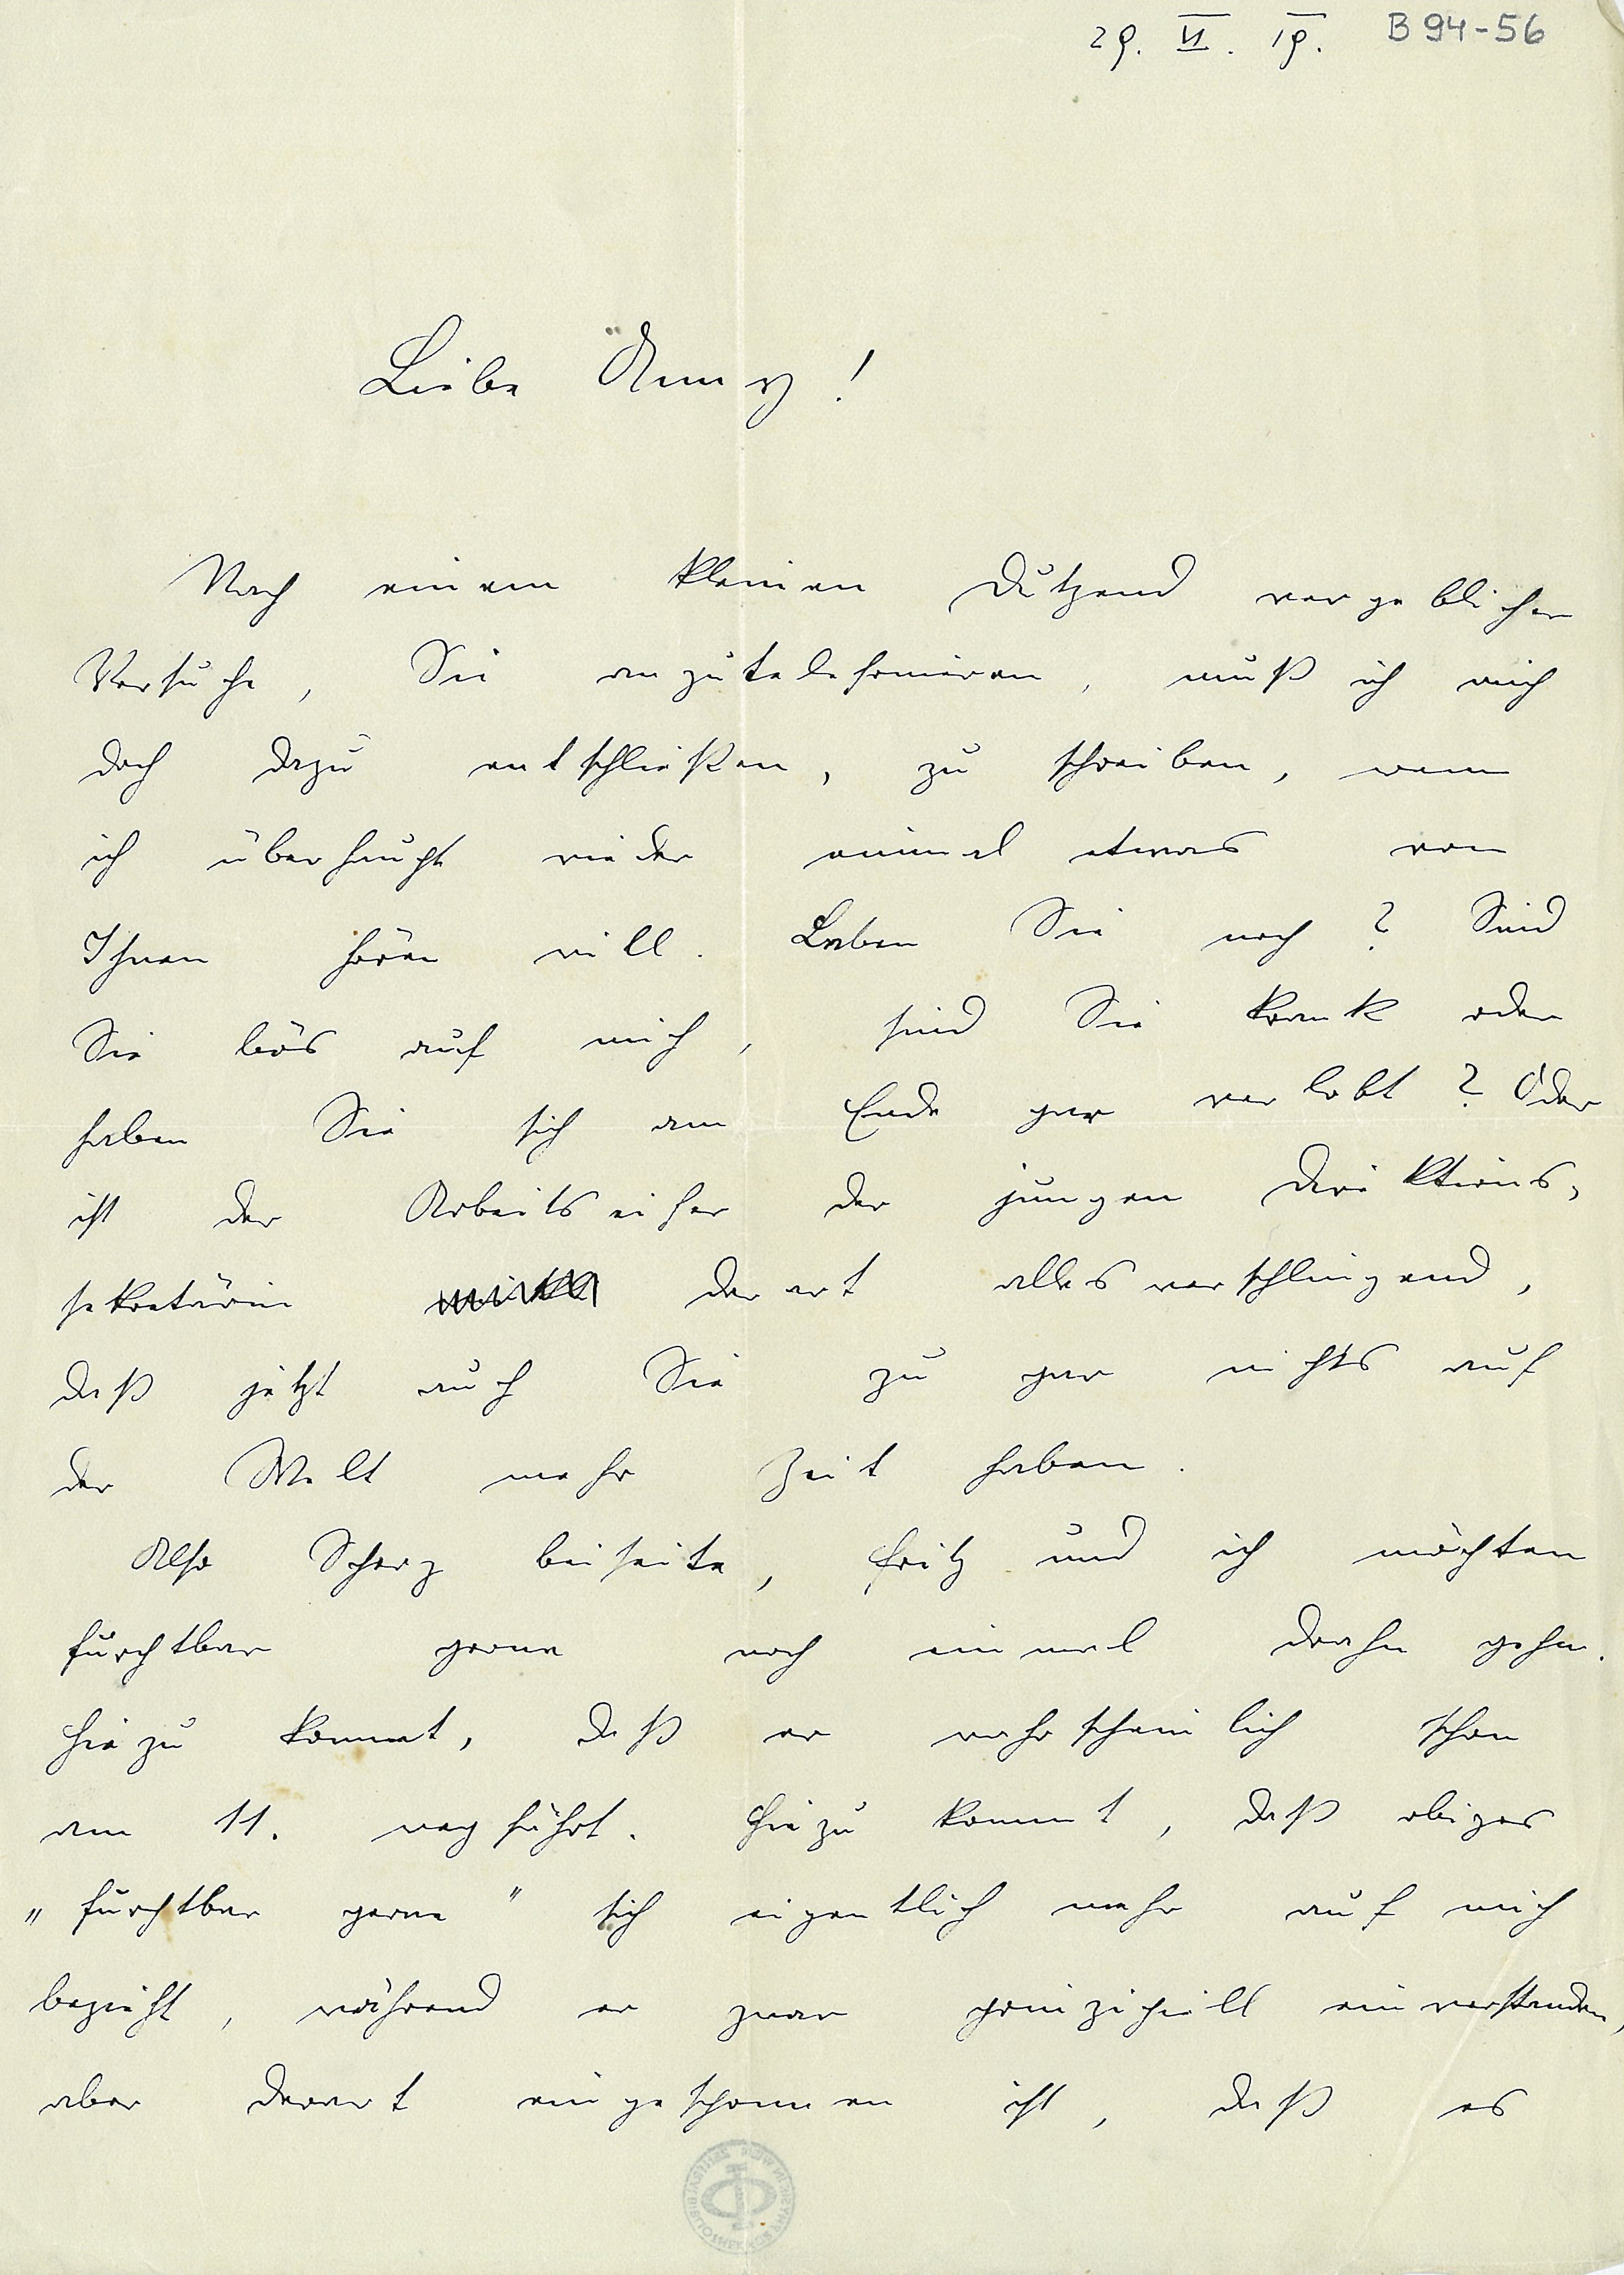 29. VI. 19. B 94-56
Liebe Änny!
Nach einem kleinen Dutzend vergeblicher
Versuche, Sie anzutelefonieren, muß ich mich
doch dazu entschließen, zu schreiben, wenn
ich überhaupt wieder einmal etwas von
Ihnen hören will. Leben Sie noch? Sind
Sie bös auf mich, sind Sie krank oder
haben Sie sich am Ende gar verlobt? Oder
ist der Arbeitseifer der jungen Direktions-
sekretärin derart allesverschlingend,
daß jetzt auch Sie zu gar nichts auf
der Welt mehr Zeit haben.
Also Scherz beiseite, Fritz und ich möchten
furchtbar gerne noch einmal drahn gehn.
Hiezu kommt, daß er wahrscheinlich schon
am 11. wegfährt. Hiezu kommt, daß obiges
„furchtbar gerne" sich eigentlich mehr auf mich
bezieht, während er zwar prinzipiell einverstanden,
aber derart eingesponnen ist, daß es